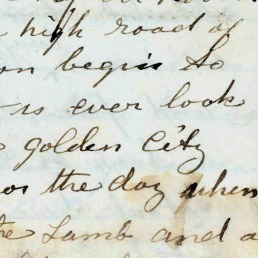 high road of
on begin to
us ever look
golden City
or the day when
the Lamb and a